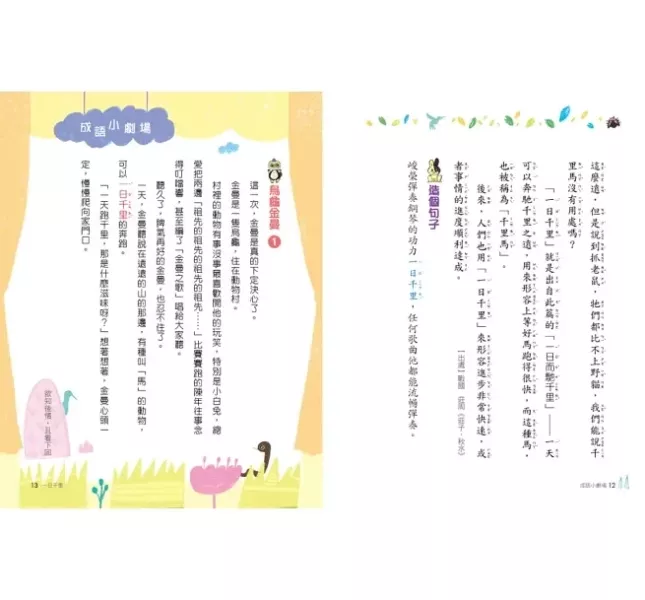 這麼遠，但是說到抓老鼠，牠們都比不上野貓，我們能說千
里馬沒有用處嗎？
「一日千里」就是出自此篇的「一日而馳千里」——一天
可以奔馳千里之遠，用來形容上等好馬跑得很快，而這種馬，
也被稱為「千里馬」。
後來，人們也用「一日千里」來形容進步非常快速，或
者事情的進度順利達成。
【出處】戰國　莊周《莊子．秋水》
造個句子
峻瑩彈奏鋼琴的功力一日千里，任何歌曲他都能流暢彈奏。
成語小劇場 12
成語小劇場
烏龜金曼 1
這一次，金曼是真的下定決心了。
金曼是一隻烏龜，住在動物村。
村裡的動物有事沒事最喜歡開他的玩笑，特別是小白兔，總
愛把兩邊「祖先的祖先的祖先的祖先……」比賽賽跑的陳年往事念
得叮噹響，甚至編了「金曼之歌」唱給大家聽。
聽久了，脾氣再好的金曼，也忍不住了。
一天，金曼聽說在遠遠的山的那邊，有種叫「馬」的動物，
可以一日千里的奔跑。
「一天跑千里，那是什麼滋味呀？」想著想著，金曼心頭一
定，慢慢爬向家門口。
欲知後情，且看下回
13 一日千里